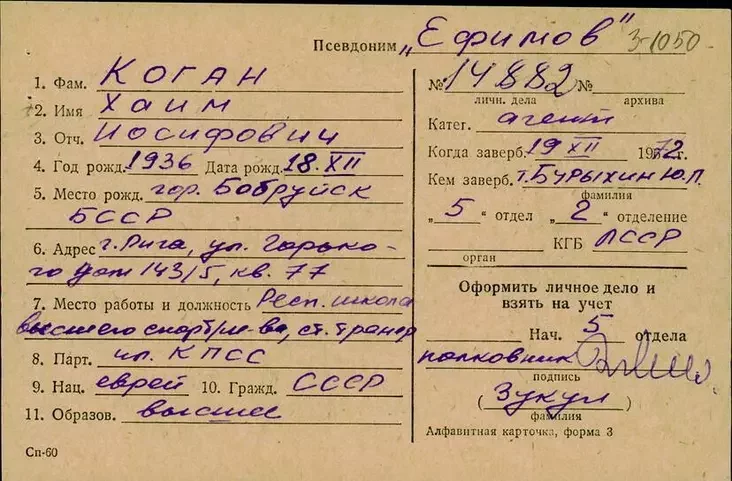 Псевдоним „Ефимов" З-1050
1. Фам. КОГАН
2. Имя ХАИМ
3. Отч. Иосифович
4. Год рожд. 1936 Дата рожд. 18.XII
5. Место рожд. гор. Бобруйск
БССР
6. Адрес г. Рига, ул. Горько-
го дом 143/5, кв. 77
7. Место работы и должность Респ. школа
высшего спорт/м-ва, ст. тренер
8. Парт. чл. КПСС
9. Нац. еврей 10. Гражд. СССР
11. Образов. высшее
Сп-60
№ 14882 №
личн. дела архива
Катег. агент
Когда заверб. 19 XII 1972 г.
Кем заверб. т. Бурыхин Ю.П.
фамилия
„ 5 " отдел „ 2 " отделение
КГБ ЛССР
орган
Оформить личное дело и
взять на учет
Нач. 5 отдела
полковник
подпись
( Зукул )
фамилия
Алфавитная карточка, форма 3